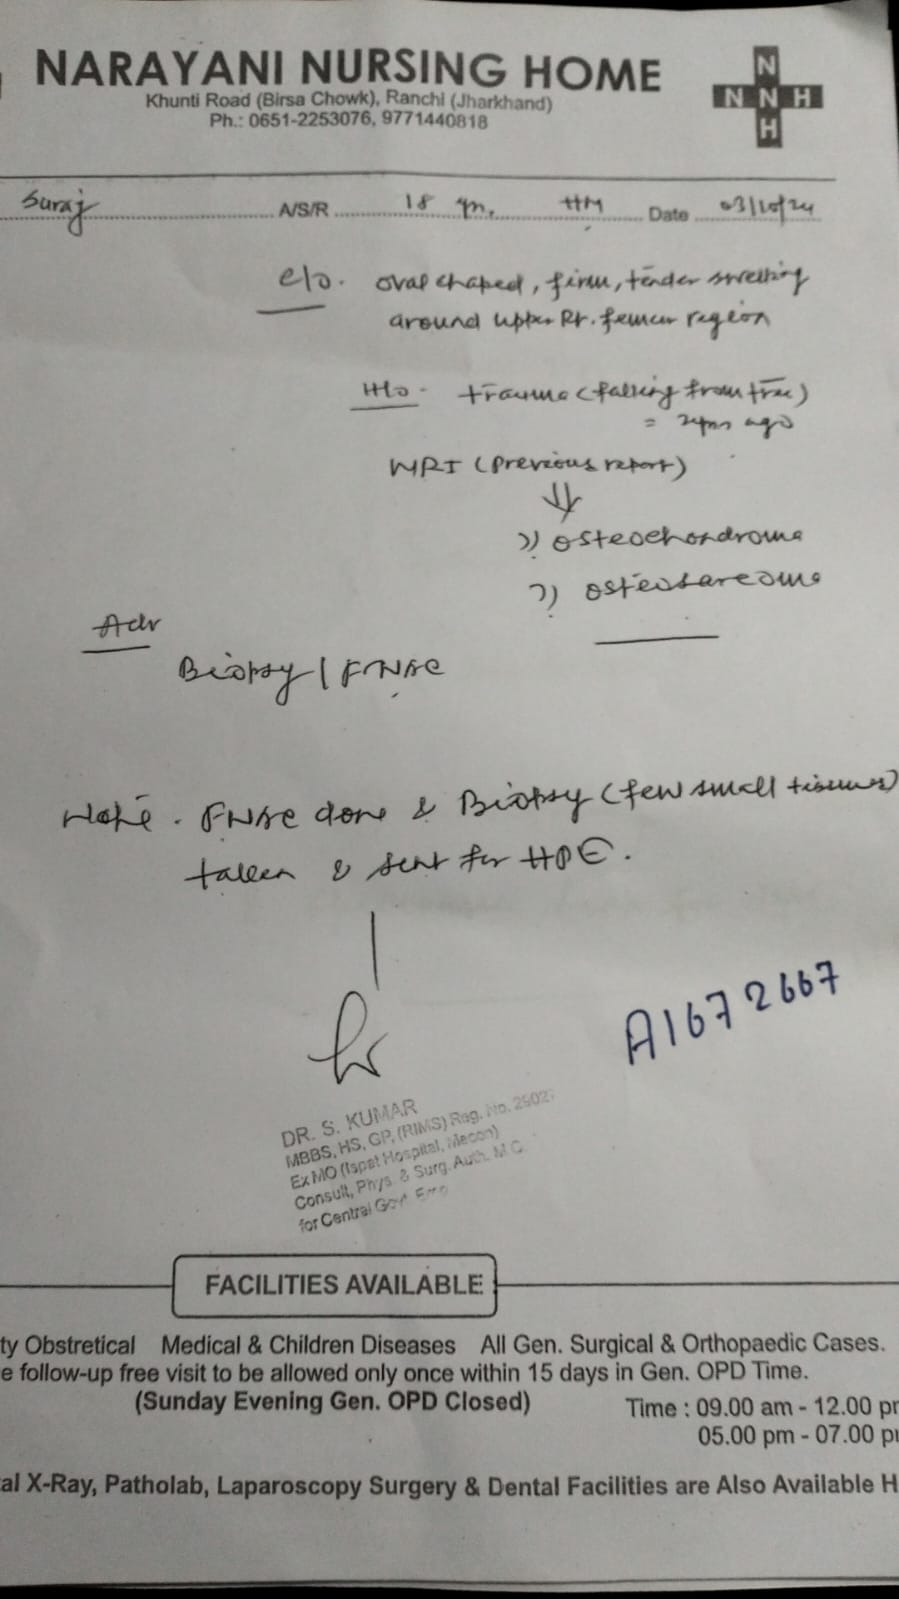 NARAYANI NURSING HOME
Khunti Road (Birsa Chowk), Ranchi (Jharkhand)
Ph.: 0651-2253076, 9771440818
N
N N H
H
Suraj A/S/R 18 HM Date 03/10/24
c/o. oval shaped, firm, tender swelling
around upper Rt. femur region
H/o - trauma (falling from tree)
= ago
MRI (previous report)
⇓
?) osteochondroma
?) osteosarcoma
Adv
Biopsy / FNAC
Note. FNAC done & Biopsy (few small tissues)
taken & sent for HPE.
A1672667
DR. S. KUMAR
MBBS, HS, GP, (RIMS) Reg. No. 2902
Ex MO (Ispat Hospital, Mecon)
Consult, Phys. & Surg. Auth. M.O.
for Central Govt.
FACILITIES AVAILABLE
ty Obstretical Medical & Children Diseases All Gen. Surgical & Orthopaedic Cases.
e follow-up free visit to be allowed only once within 15 days in Gen. OPD Time.
(Sunday Evening Gen. OPD Closed) Time : 09.00 am - 12.00 p
05.00 pm - 07.00 p
al X-Ray, Patholab, Laparoscopy Surgery & Dental Facilities are Also Available H